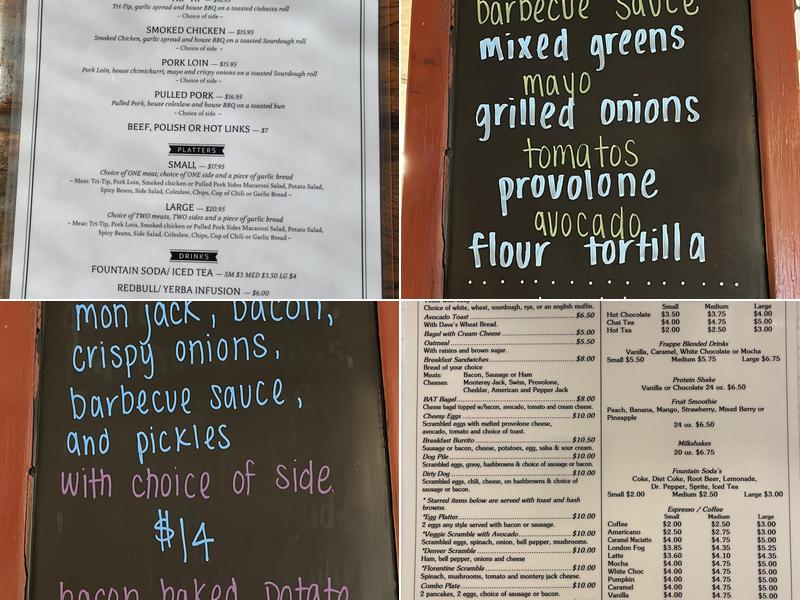 Tri-Tip, garlic spread and house BBQ on a toasted ciabatta roll
~ Choice of side ~
SMOKED CHICKEN — $15.95
Smoked Chicken, garlic spread and house BBQ on a toasted Sourdough roll
~ Choice of side ~
PORK LOIN — $15.95
Pork Loin, house chimichurri, mayo and crispy onions on a toasted Sourdough roll
~ Choice of side ~
PULLED PORK — $16.95
Pulled Pork, house coleslaw and house BBQ on a toasted bun
~ Choice of side ~
BEEF, POLISH OR HOT LINKS — $7
PLATTERS
SMALL — $17.95
Choice of ONE meat, choice of ONE side and a piece of garlic bread
~ Meat: Tri-Tip, Pork Loin, Smoked chicken or Pulled Pork Sides Macaroni Salad, Potato Salad,
Spicy Beans, Side Salad, Coleslaw, Chips, Cup of Chili or Garlic Bread ~
LARGE — $20.95
Choice of TWO meats, TWO sides and a piece of garlic bread
~ Meat: Tri-Tip, Pork Loin, Smoked chicken or Pulled Pork Sides Macaroni Salad, Potato Salad,
Spicy Beans, Side Salad, Coleslaw, Chips, Cup of Chili or Garlic Bread ~
DRINKS
FOUNTAIN SODA/ ICED TEA — SM $3 MED $3.50 LG $4
REDBULL/ YERBA INFUSION — $6.00
barbecue sauce
mixed greens
mayo
grilled onions
tomatos
provolone
avocado
flour tortilla
mon jack, bacon,
crispy onions,
barbecue sauce,
and pickles
with choice of side
$14
bacon baked potato
Choice of white, wheat, sourdough, rye, or an english muffin.
Avocado Toast $6.50
With Dave's Wheat Bread.
Bagel with Cream Cheese $5.00
Oatmeal $5.50
With raisins and brown sugar.
Breakfast Sandwiches $8.00
Bread of your choice
Meats: Bacon, Sausage or Ham
Cheeses: Monterey Jack, Swiss, Provolone,
Cheddar, American and Pepper Jack
BAT Bagel $8.00
Cheese bagel topped w/bacon, avocado, tomato and cream cheese.
Cheesy Eggs $10.00
Scrambled eggs with melted provolone cheese,
avocado, tomato and choice of toast.
Breakfast Burrito $10.50
Sausage or bacon, cheese, potatoes, egg, salsa & sour cream.
Dog Pile $10.00
Scrambled eggs, gravy, hashbrowns & choice of sausage or bacon.
Dirty Dog $10.00
Scrambled eggs, chili, cheese, on hashbrowns & choice of
sausage or bacon.
* Starred items below are served with toast and hash
browns.
*Egg Platter $10.00
2 eggs any style served with bacon or sausage.
*Veggie Scramble with Avocado $10.00
Scrambled eggs, spinach, onion, bell pepper, mushrooms.
*Denver Scramble $10.00
Ham, bell pepper, onions and cheese
*Florentine Scramble $10.00
Spinach, mushrooms, tomato and montery jack cheese.
Combo Plate $10.00
2 pancakes, 2 eggs, choice of sausage or bacon.
Small Medium Large
Hot Chocolate $3.50 $3.75 $4.00
Chai Tea $4.00 $4.75 $5.00
Hot Tea $2.00 $2.50 $3.00
Frappe Blended Drinks
Vanilla, Caramel, White Chocolate or Mocha
Small $5.50 Medium $5.75 Large $6.75
Protein Shake
Vanilla or Chocolate 24 oz. $6.50
Fruit Smoothie
Peach, Banana, Mango, Strawberry, Mixed Berry or
Pineapple
24 oz. $6.50
Milkshakes
20 oz. $6.75
Fountain Soda's
Coke, Diet Coke, Root Beer, Lemonade,
Dr. Pepper, Sprite, Iced Tea
Small $2.00 Medium $2.50 Large $3.00
Espresso / Coffee
Small Medium Large
Coffee $2.00 $2.50 $3.00
Americano $2.50 $2.75 $3.00
Caramel Maciatto $4.00 $4.75 $5.00
London Fog $3.85 $4.35 $5.25
Latte $3.60 $4.10 $4.35
Mocha $4.00 $4.75 $5.00
White Choc $4.00 $4.75 $5.00
Pumpkin $4.00 $4.75 $5.00
Caramel $4.00 $4.75 $5.00
Vanilla $4.00 $4.75 $5.00